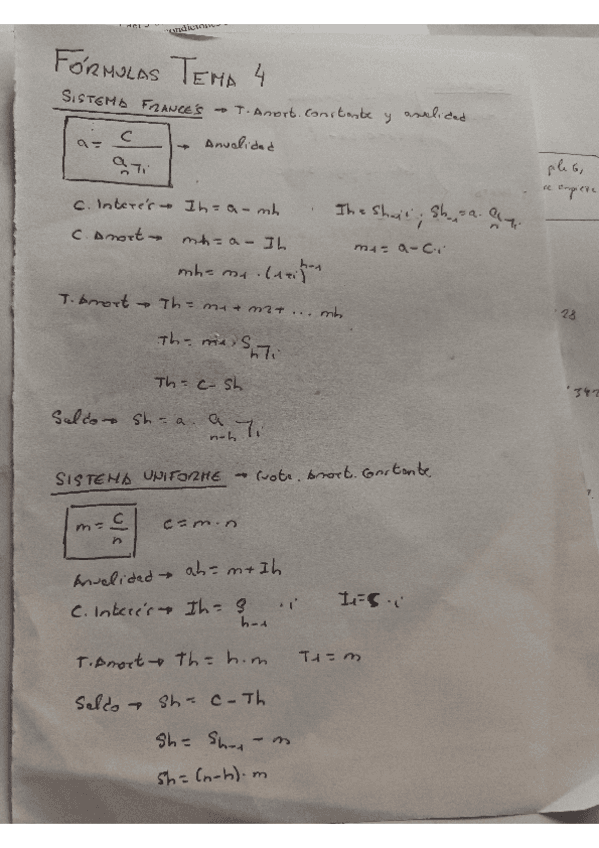 condiciones
FÓRMULAS TEMA 4
SISTEMA FRANCÉS → T. Amort. Constante y anualidad
a = C / a n⌉i → Anualidad
C. Interés → Ih = a - mh Ih = Sh-1·i ; Sh-1 = a·
C. Amort → mh = a - Ih m1 = a - C·i
mh = m1 · (1+i)^h-1
T. Amort → Th = m1 + m2 + ... mh
Th = m1 · S h⌉i
Th = C - Sh
Saldo → Sh = a · a n-h⌉i
SISTEMA UNIFORME → Cuota. Amort. Constante
m = C / n C = m · n
Anualidad → ah = m + Ih
C. Interés → Ih = S h-1 · i I1 = · i
T. Amort → Th = h · m T1 = m
Saldo → Sh = C - Th
Sh = Sh-1 - m
Sh = (n-h) · m
28